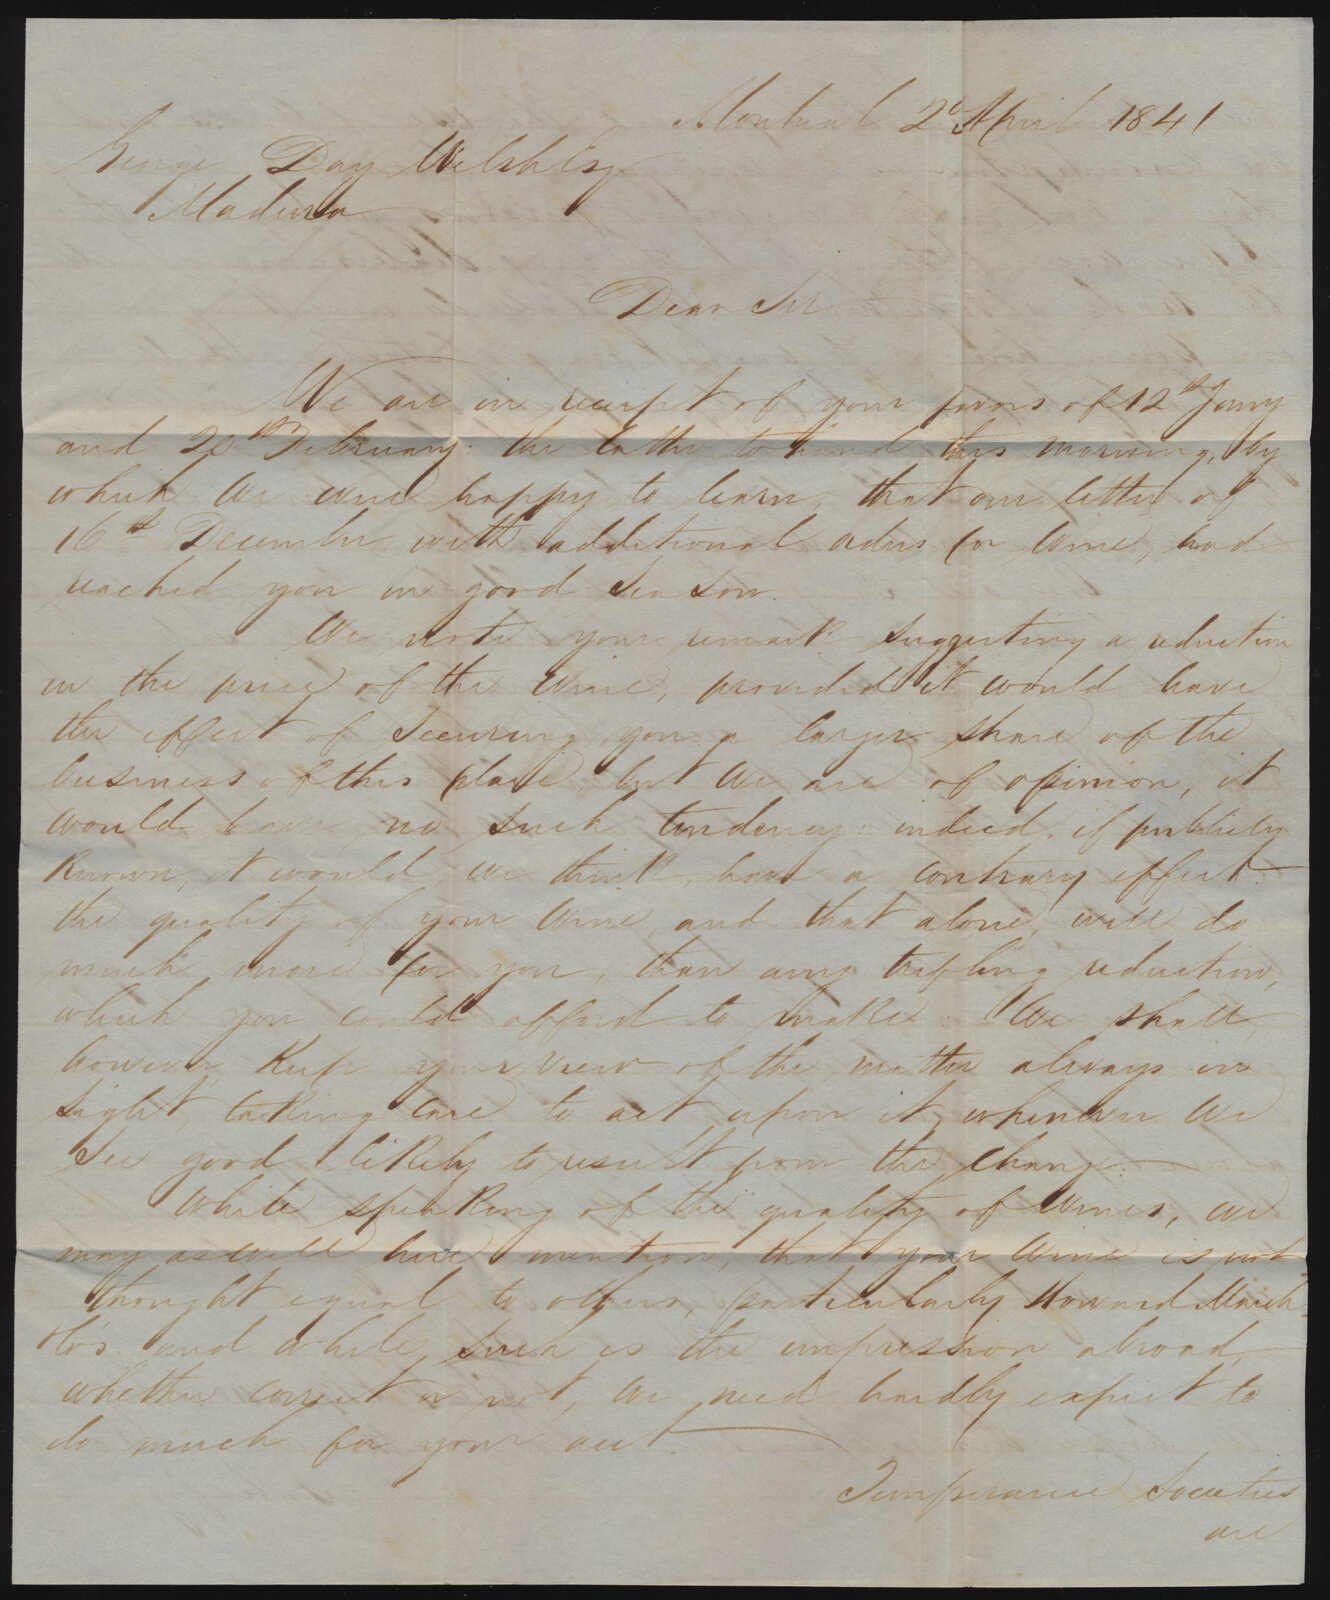 Montreal 2d April 1841
George Day Welsh Esq
Madeira
Dear Sir
We are in receipt of your favors of 12th Jany
and 20th February: the latter to hand this morning, by
which we were happy to learn, that our letter of
16th December with additional orders for Wine, had
reached you in good Season.
We note your remark suggesting a reduction
in the price of the Wine, provided it would have
the effect of Securing you a larger share of the
business of this place but We are of opinion, it
would have no such tendency: indeed, if publicly
Known, it would, we think, have a contrary effect:
the quality of your Wine, and that alone, will do
much more for you, than any trifling reduction,
which you could afford to make. We shall,
however Keep your view of the matter always in
Sight, taking care to act upon it, whenever We
See good likely to result from the change.
While speaking of the quality of Wines, we
may as well here mention, that your Wine is not
thought equal to others, particularly Howard March
&Co's. and while such is the impression abroad,
whether correct or not, we need hardly expect to
do much for your acct.
Temperance Societies
are